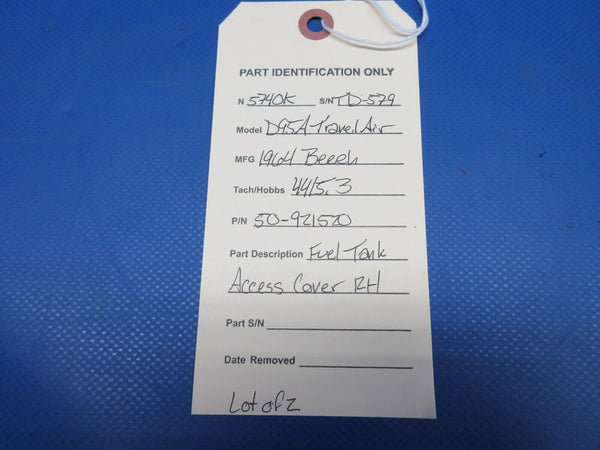 PART IDENTIFICATION ONLY
N 5740K S/N TD-579
Model D95A Travel Air
MFG 1964 Beech
Tach/Hobbs 4415.3
P/N 50-921520
Part Description Fuel Tank
Access Cover RH
Part S/N
Date Removed
Lot of 2